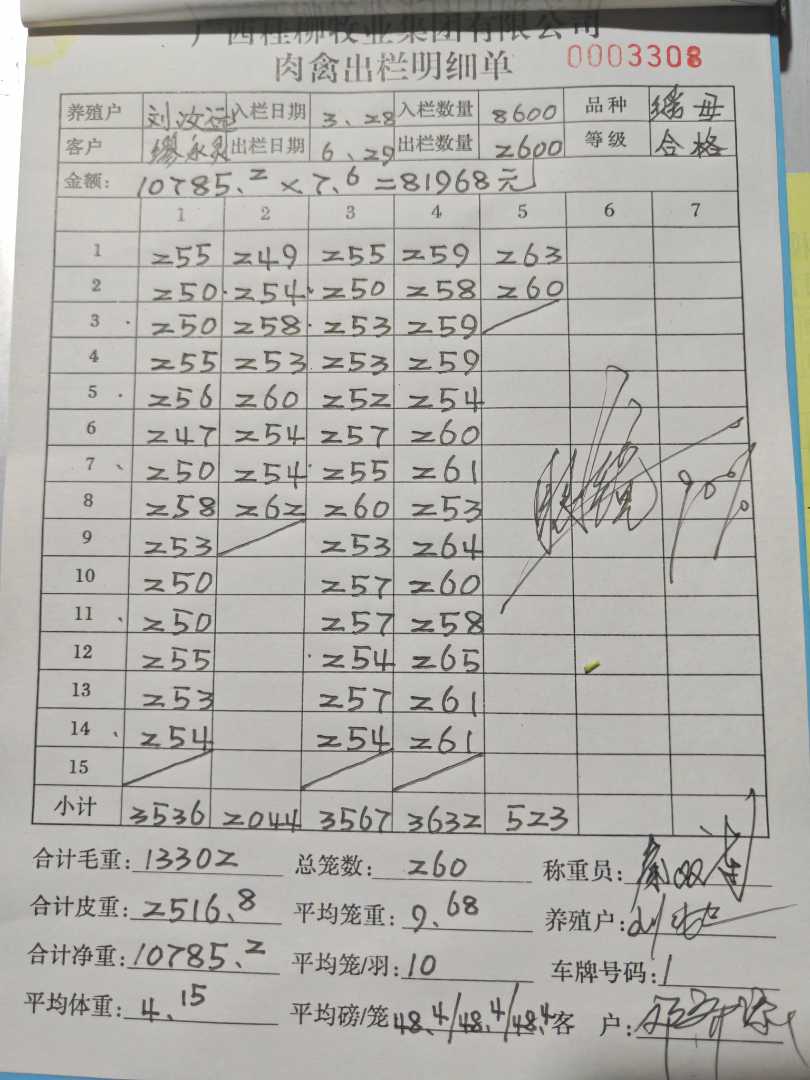 广西桂柳牧业集团有限公司
肉禽出栏明细单 0003308
养殖户 刘汝 入栏日期 3、28 入栏数量 8600 品种 母
客户 永 出栏日期 6、29 出栏数量 2600 等级 合格
金额: 10785.2 × 7.6 = 81968元
1 2 3 4 5 6 7
1 255 249 255 259 263
2 250 254 250 258 260
3 250 258 253 259
4 255 253 253 259
5 256 260 252 254
6 247 254 257 260
7 250 254 255 261
8 258 262 260 253
9 253 253 264
10 250 257 260
11 250 257 258
12 255 254 265
13 253 257 261
14 254 254 261
15
小计 3536 2044 3567 3632 523
90%
合计毛重: 13302 总笼数: 260 称重员:
合计皮重: 2516.8 平均笼重: 9.68 养殖户: 刘
合计净重: 10785.2 平均笼/羽: 10 车牌号码:
平均体重: 4.15 平均磅/笼 48.4/48.4/48.4 客 户: